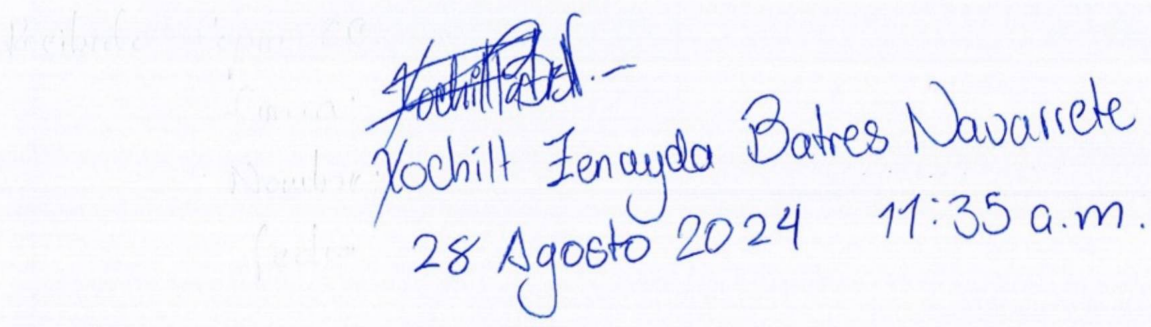 Xochilt Zenayda Batres Navarrete
28 Agosto 2024 11:35 a.m.